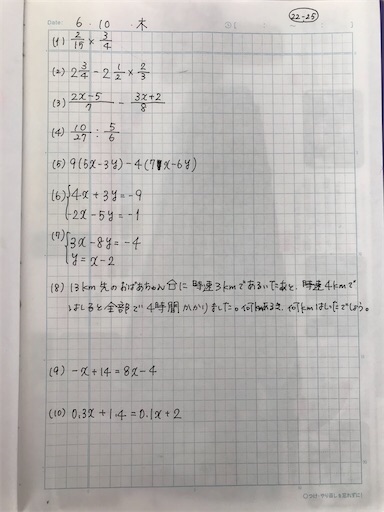 Date: 6 · 10 · 木
22-25
(1) 2/15 × 3/4
(2) 2 3/4 - 2 1/2 × 2/3
(3) 2x-5/7 - 3x+2/8
(4) 10/27 : 5/6
(5) 9(5x-3y)-4(7x-6y)
(6) { 4x+3y=-9
-2x-5y=-1
(7) { 3x-8y=-4
y=x-2
(8) 13km先のおばあちゃん台に時速3kmであるいたあと、時速4kmで
はしると全部で4時間かかりました。何kmあるき、何kmはしったでしょう。
(9) -x+14=8x-4
(10) 0.3x+1.4=0.1x+2